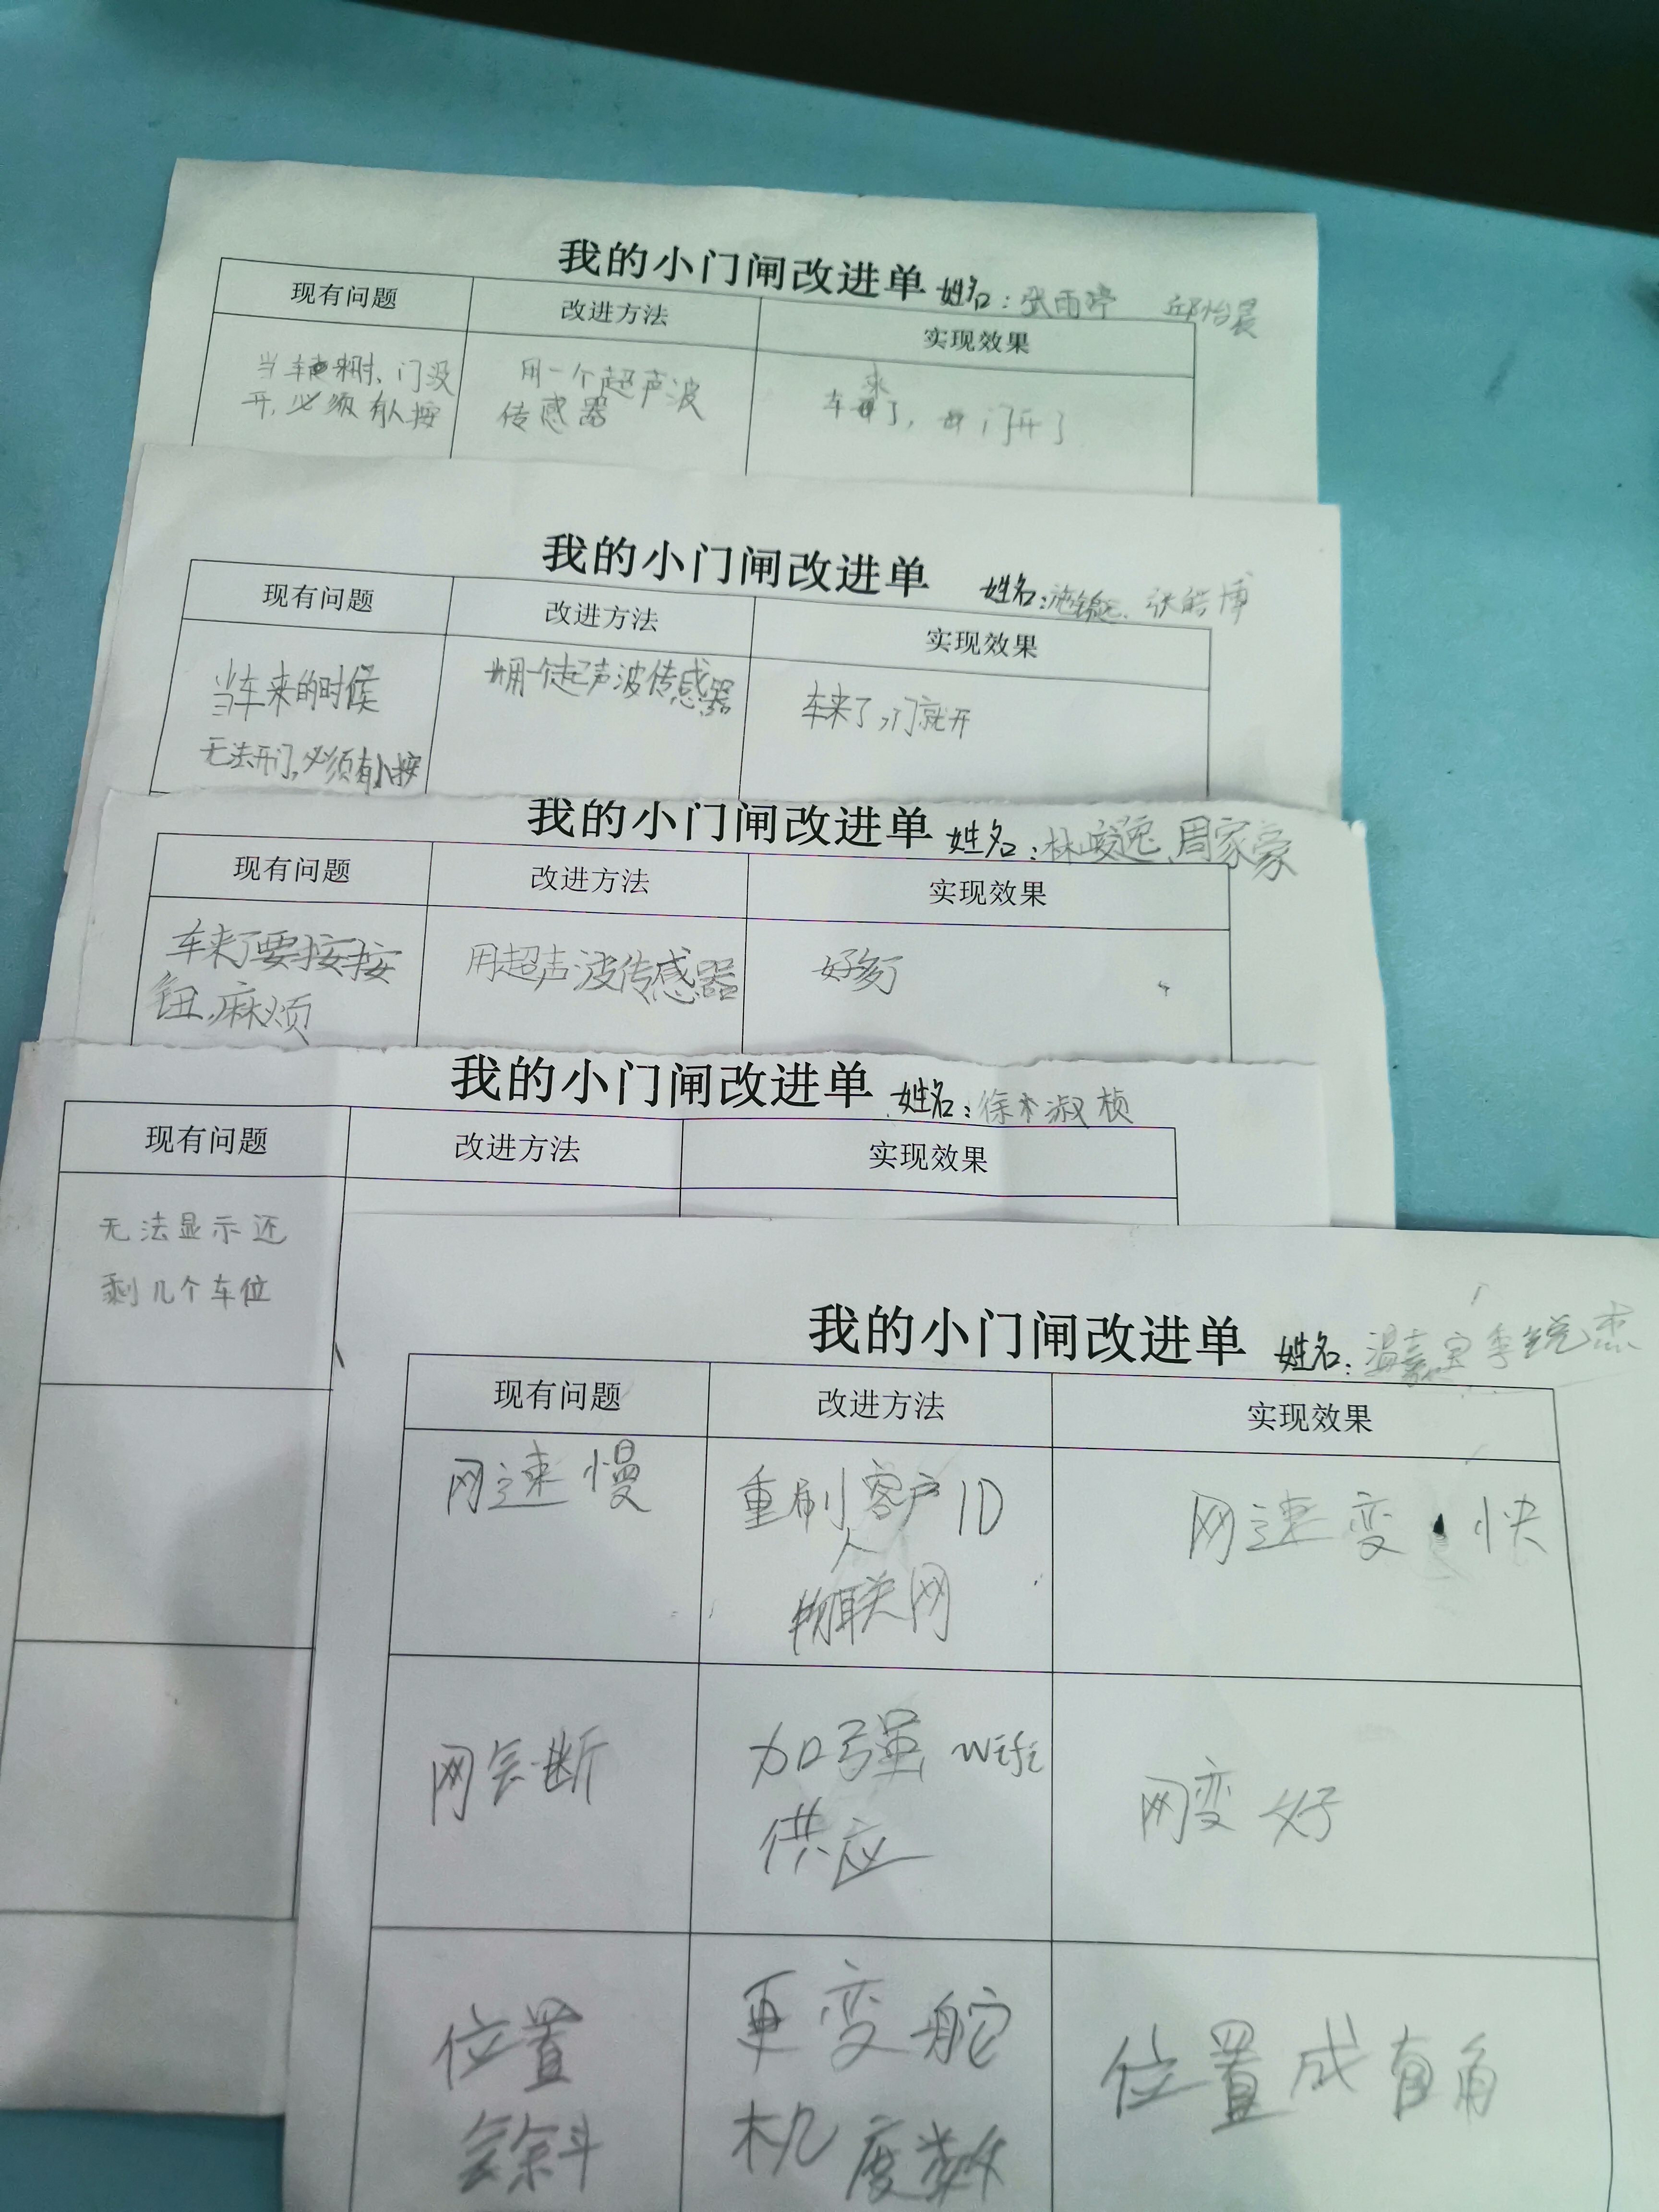 我的小门闸改进单 姓名：张雨婷 邱怡晨
现有问题 改进方法 实现效果
当车来时、门没
开,必须有人按
用一个超声波
传感器
车来了，门开了
我的小门闸改进单 姓名： 张皓博
现有问题 改进方法 实现效果
当车来的时候
无法开门,必须有人按
用一个超声波传感器
车来了,门就开
我的小门闸改进单 姓名：林峻逸、周家豪
现有问题 改进方法 实现效果
车来了要按按
钮,麻烦
用超声波传感器
好多了
我的小门闸改进单 姓名：徐淑桢
现有问题 改进方法 实现效果
无法显示还
剩几个车位
我的小门闸改进单 姓名：温嘉宝 李锐杰
现有问题 改进方法 实现效果
网速慢
重刷客户ID
人
物联网
网速变快
网会断
加强wifi
供应
网变好
位置
会斜
更变舵
机度数
位置成直角